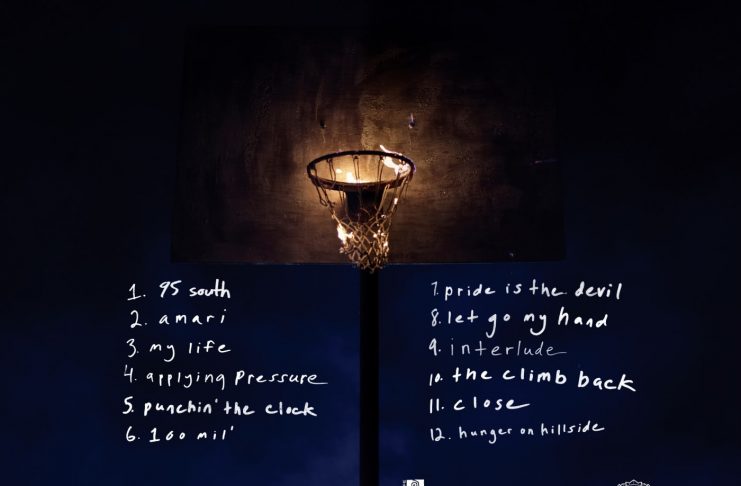 1. 95 south
2. amari
3. my life
4. applying pressure
5. punchin' the clock
6. 100 mil'
7. pride is the devil
8. let go my hand
9. interlude
10. the climb back
11. close
12. hunger on hillside